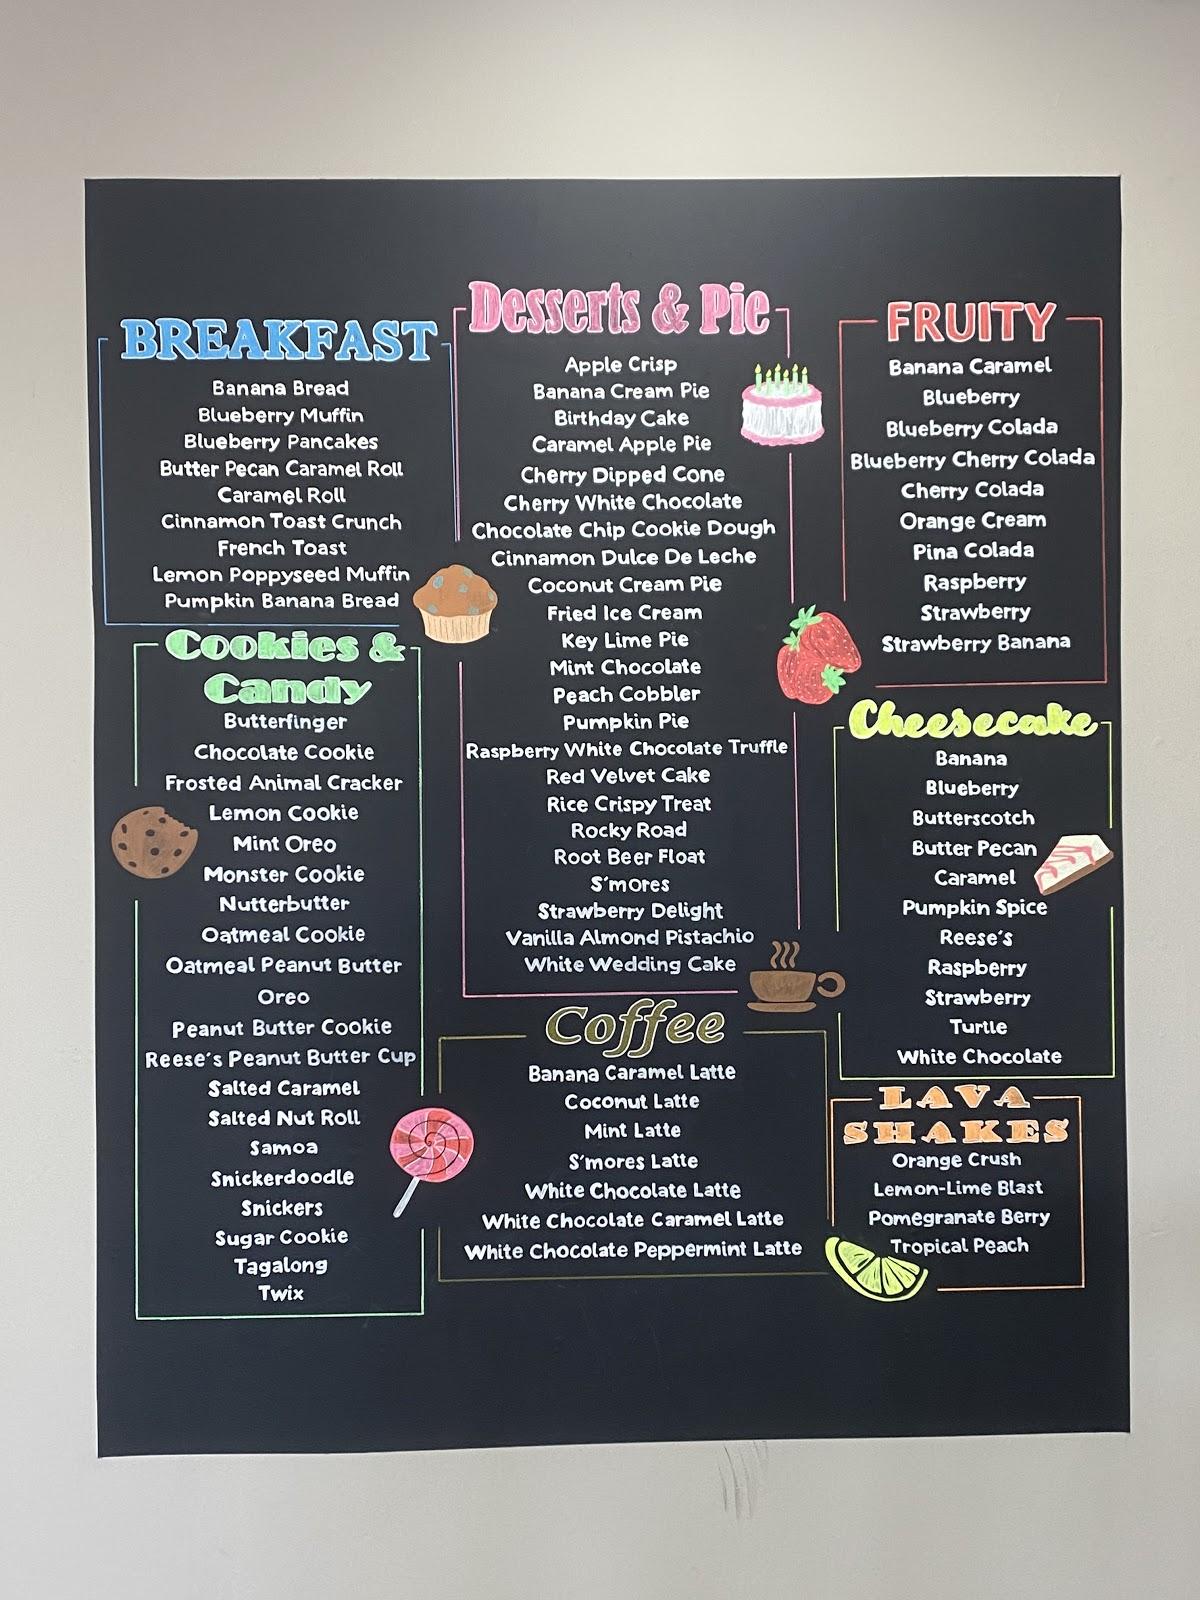 BREAKFAST
Banana Bread
Blueberry Muffin
Blueberry Pancakes
Butter Pecan Caramel Roll
Caramel Roll
Cinnamon Toast Crunch
French Toast
Lemon Poppyseed Muffin
Pumpkin Banana Bread
Cookies &
Candy
Butterfinger
Chocolate Cookie
Frosted Animal Cracker
Lemon Cookie
Mint Oreo
Monster Cookie
Nutterbutter
Oatmeal Cookie
Oatmeal Peanut Butter
Oreo
Peanut Butter Cookie
Reese's Peanut Butter Cup
Salted Caramel
Salted Nut Roll
Samoa
Snickerdoodle
Snickers
Sugar Cookie
Tagalong
Twix
Desserts & Pie
Apple Crisp
Banana Cream Pie
Birthday Cake
Caramel Apple Pie
Cherry Dipped Cone
Cherry White Chocolate
Chocolate Chip Cookie Dough
Cinnamon Dulce De Leche
Coconut Cream Pie
Fried Ice Cream
Key Lime Pie
Mint Chocolate
Peach Cobbler
Pumpkin Pie
Raspberry White Chocolate Truffle
Red Velvet Cake
Rice Crispy Treat
Rocky Road
Root Beer Float
S'mores
Strawberry Delight
Vanilla Almond Pistachio
White Wedding Cake
Coffee
Banana Caramel Latte
Coconut Latte
Mint Latte
S'mores Latte
White Chocolate Latte
White Chocolate Caramel Latte
White Chocolate Peppermint Latte
FRUITY
Banana Caramel
Blueberry
Blueberry Colada
Blueberry Cherry Colada
Cherry Colada
Orange Cream
Pina Colada
Raspberry
Strawberry
Strawberry Banana
Cheesecake
Banana
Blueberry
Butterscotch
Butter Pecan
Caramel
Pumpkin Spice
Reese's
Raspberry
Strawberry
Turtle
White Chocolate
LAVA
SHAKES
Orange Crush
Lemon-Lime Blast
Pomegranate Berry
Tropical Peach